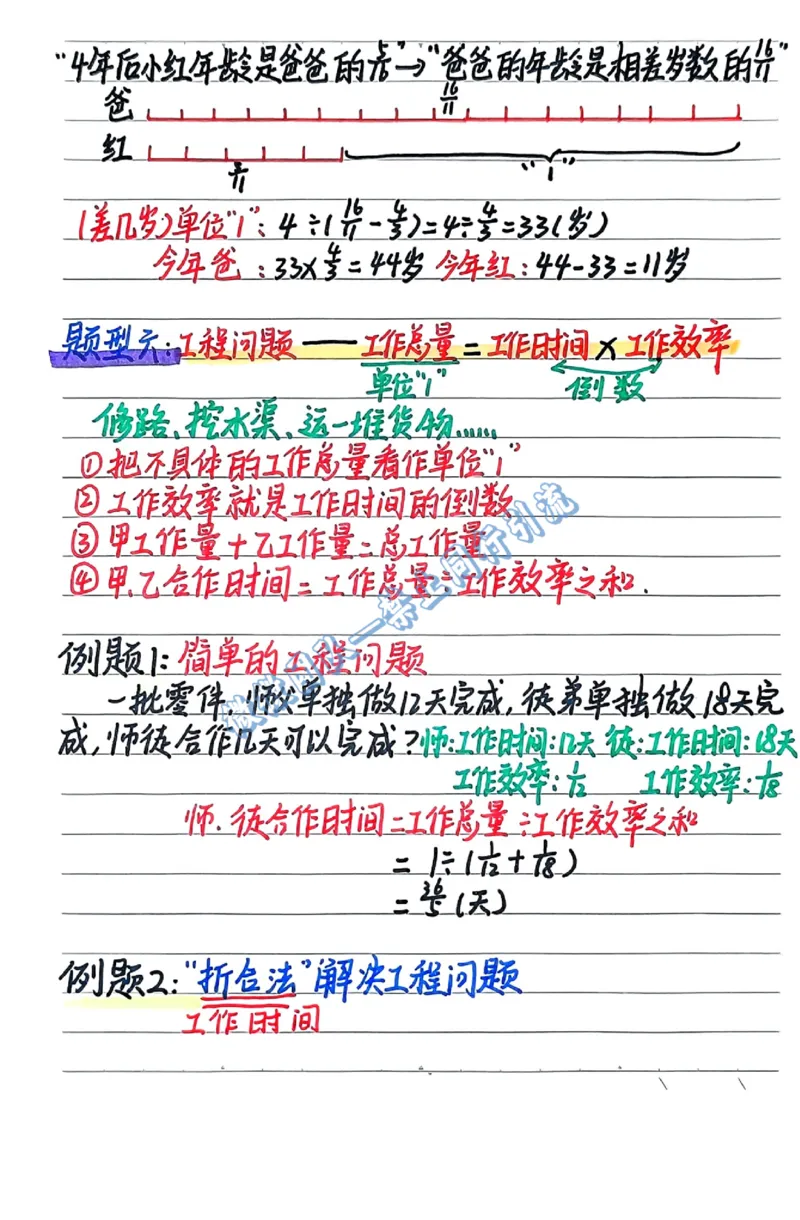 “4年后小红年龄是爸爸的5/16”→“爸爸的年龄是相差岁数的16/11”
爸 16/11
红
5/11 “1”
(差几岁)单位“1”：4÷(16/11-4/3)=4÷4/3=33(岁)
今年爸：33×4/3=44岁 今年红：44-33=11岁
题型六：工程问题——工作总量=工作时间×工作效率
单位“1” 倒数
修路、挖水渠、运一堆货物……
①把不具体的工作总量看作单位“1”
②工作效率就是工作时间的倒数
③甲工作量+乙工作量=总工作量
④甲、乙合作时间=工作总量÷工作效率之和.
例题1：简单的工程问题
一批零件，师父单独做12天完成，徒弟单独做18天完
成，师徒合作几天可以完成？师：工作时间：12天 徒：工作时间：18天
工作效率：1/12 工作效率：1/18
师、徒合作时间=工作总量÷工作效率之和
=1÷(1/12+1/18)
=36/5(天)
例题2：“折合法”解决工程问题
工作时间